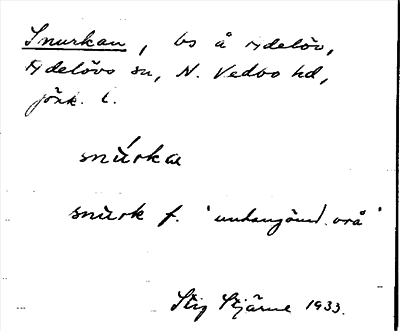 Snurkan, bs å Ydelöv,
Ydelövs sn, N. Vedbo hd,
jönk. l.
snúrka
snurk f. 'undangömd vrå'
Stig Stjärne 1933.